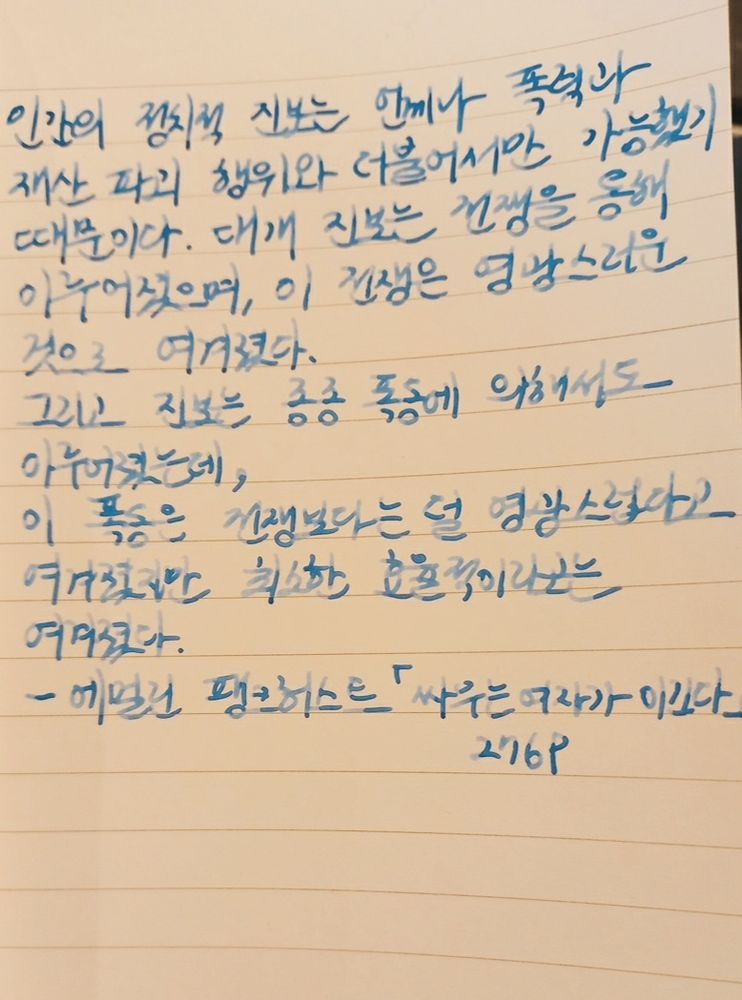 인간의 정치적 진보는 언제나 폭력과
재산 파괴 행위와 더불어서만 가능했기
때문이다. 대개 진보는 전쟁을 통해
이루어졌으며, 이 전쟁은 영광스러운
것으로 여겨졌다.
그리고 진보는 종종 폭동에 의해서도
이루어졌는데,
이 폭동은 전쟁보다는 덜 영광스럽다고
여겨졌지만 최소한 효율적이라고는
여겨졌다.
- 에멀린 팽크허스트 「싸우는 여자가 이긴다」
276p